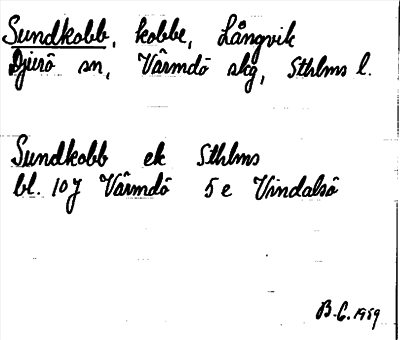 Sundkobb, kobbe, Långvik
Djurö sn, Värmdö skg, Sthlms l.
Sundkobb ek Sthlms
bl. 107 Värmdö 5 e Vindalsö
B.G. 1989